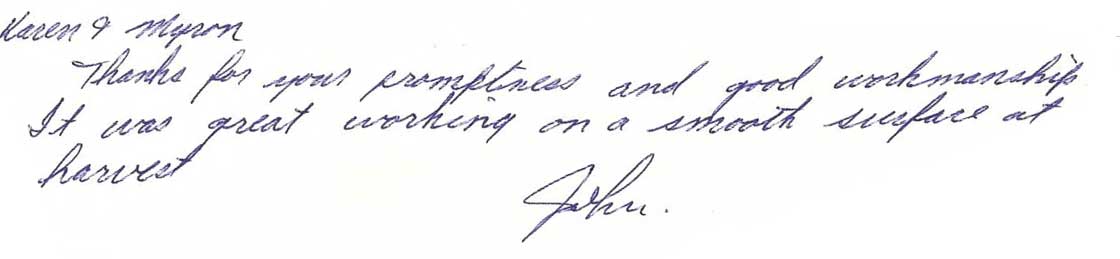 Karen & Myron
Thanks for your promptness and good workmanship
It was great working on a smooth surface at
harvest
John.